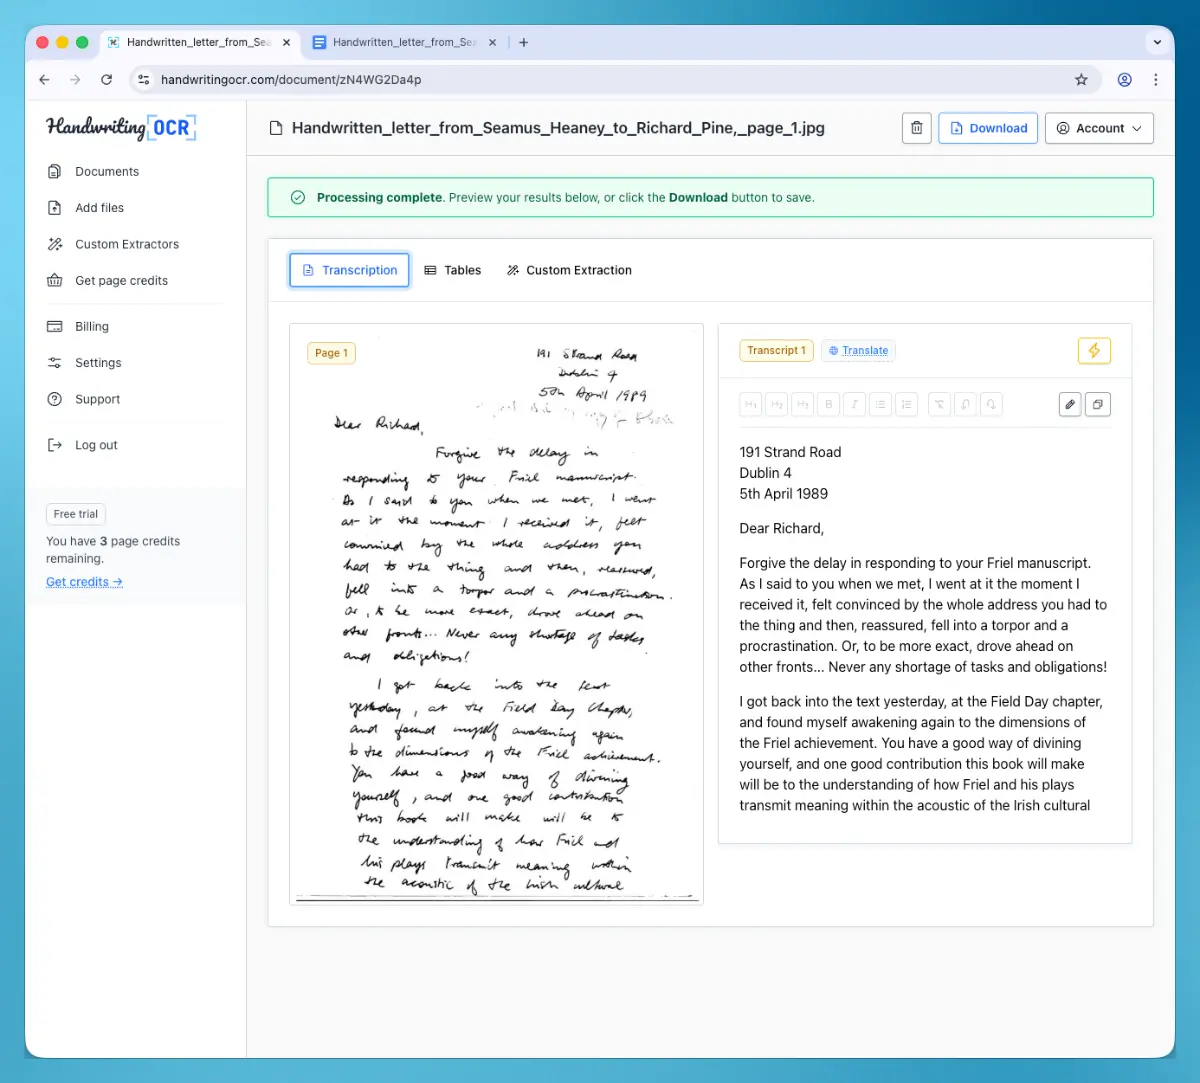 Handwritten_letter_from_Sea
Handwritten_letter_from_Se
handwritingocr.com/document/zN4WG2Da4p
Handwriting OCR
Documents
Add files
Custom Extractors
Get page credits
Billing
Settings
Support
Log out
Free trial
You have 3 page credits
remaining.
Get credits →
Handwritten_letter_from_Seamus_Heaney_to_Richard_Pine,_page_1.jpg
Download
Account
Processing complete. Preview your results below, or click the Download button to save.
Transcription
Tables
Custom Extraction
Page 1
191 Strand Road
Dublin 4
5th April 1989
Dear Richard,
Forgive the delay in
responding to your Friel manuscript.
As I said to you when we met, I went
at it the moment I received it, felt
convinced by the whole address you
had to the thing and then, reassured,
fell into a torpor and a procrastination.
Or, to be more exact, drove ahead on
other fronts... Never any shortage of tasks
and obligations!
I got back into the text
yesterday, at the Field Day chapter,
and found myself awakening again
to the dimensions of the Friel achievement.
You have a good way of divining
yourself, and one good contribution
this book will make will be to
the understanding of how Friel and
his plays transmit meaning within
the acoustic of the Irish cultural
Transcript 1
Translate
H1 H2 H3 B I
191 Strand Road
Dublin 4
5th April 1989
Dear Richard,
Forgive the delay in responding to your Friel manuscript.
As I said to you when we met, I went at it the moment I
received it, felt convinced by the whole address you had to
the thing and then, reassured, fell into a torpor and a
procrastination. Or, to be more exact, drove ahead on
other fronts... Never any shortage of tasks and obligations!
I got back into the text yesterday, at the Field Day chapter,
and found myself awakening again to the dimensions of
the Friel achievement. You have a good way of divining
yourself, and one good contribution this book will make
will be to the understanding of how Friel and his plays
transmit meaning within the acoustic of the Irish cultural